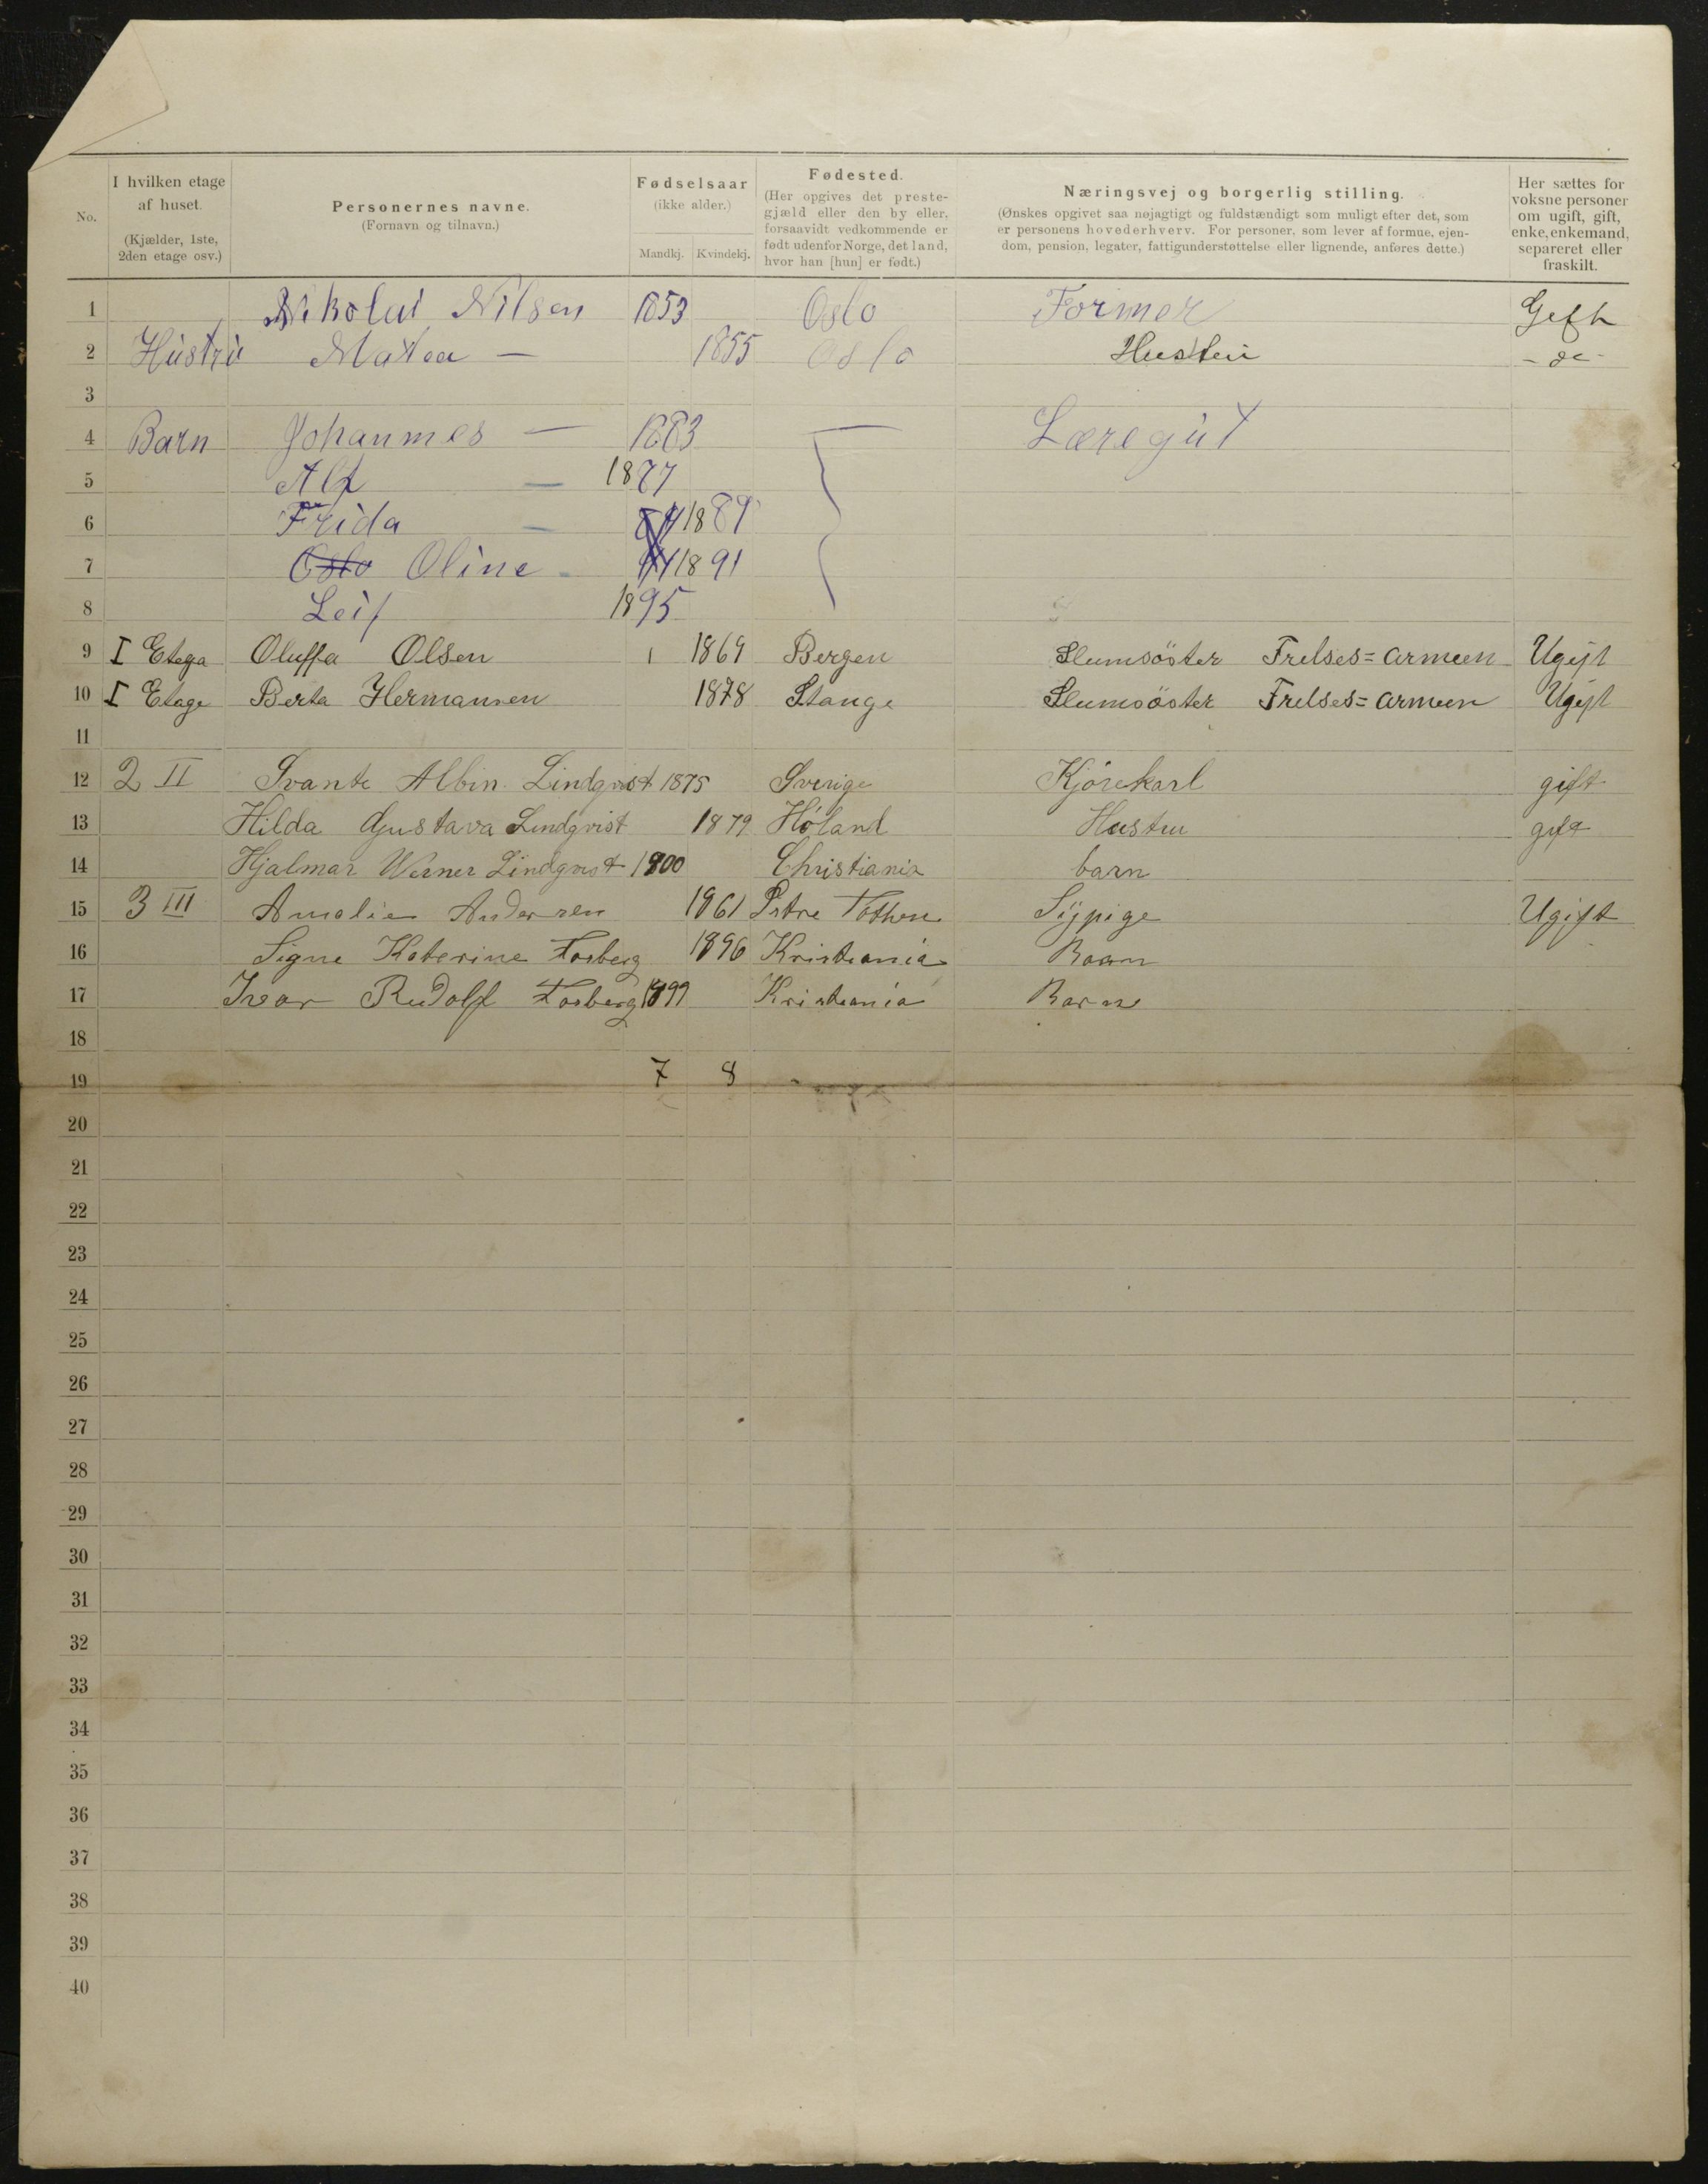 No.
I hvilken etage af huset. (Kjælder, 1ste, 2den etage osv.)
Personernes navne. (Fornavn og tilnavn.)
Fødselsaar (ikke alder.) Mandkj. Kvindekj.
Fødested. (Her opgives det prestegjæld eller den by eller, forsaavidt vedkommende er født udenfor Norge, det land, hvor han [hun] er født.)
Næringsvej og borgerlig stilling. (Ønskes opgivet saa nøjagtigt og fuldstændigt som muligt efter det, som er personens hovederhverv. For personer, som lever af formue, ejendom, pension, legater, fattigunderstøttelse eller lignende, anføres dette.)
Her sættes for voksne personer om ugift, gift, enke, enkemand, separeret eller fraskilt.
1 Nikolai Nilsen 1853 Oslo Former Gift
2 Hustru Matea — 1855 Oslo Hustru - do -
3
4 Barn Johannes — 1883 Læregut
5 Alf — 1887
6 Frida — 1889
7 Oslo Oline - 1891
8 Leif 1895
9 I Etega Oluffa Olsen 1869 Bergen Slumsöster Frelses=armeen Ugift
10 I Etage Berta Hermansen 1878 Stange Slumsöster Frelses=armeen Ugift
11
12 2 II Svante Albin Lindqvist 1875 Sverige Kjörekarl gift
13 Hilda Gustava Lindqvist 1879 Höland Hustru gift
14 Hjalmar Werner Lindqvist 1900 Christiania barn
15 3 III Amalie Andersen 1861 Östre Tothen Sypige Ugift
16 Signe Katerine Forberg 1896 Kristiania Baarn
17 Ivar Rudolf Forberg 1899 Kristiania Barn
18
19 7 8
20
21
22
23
24
25
26
27
28
29
30
31
32
33
34
35
36
37
38
39
40